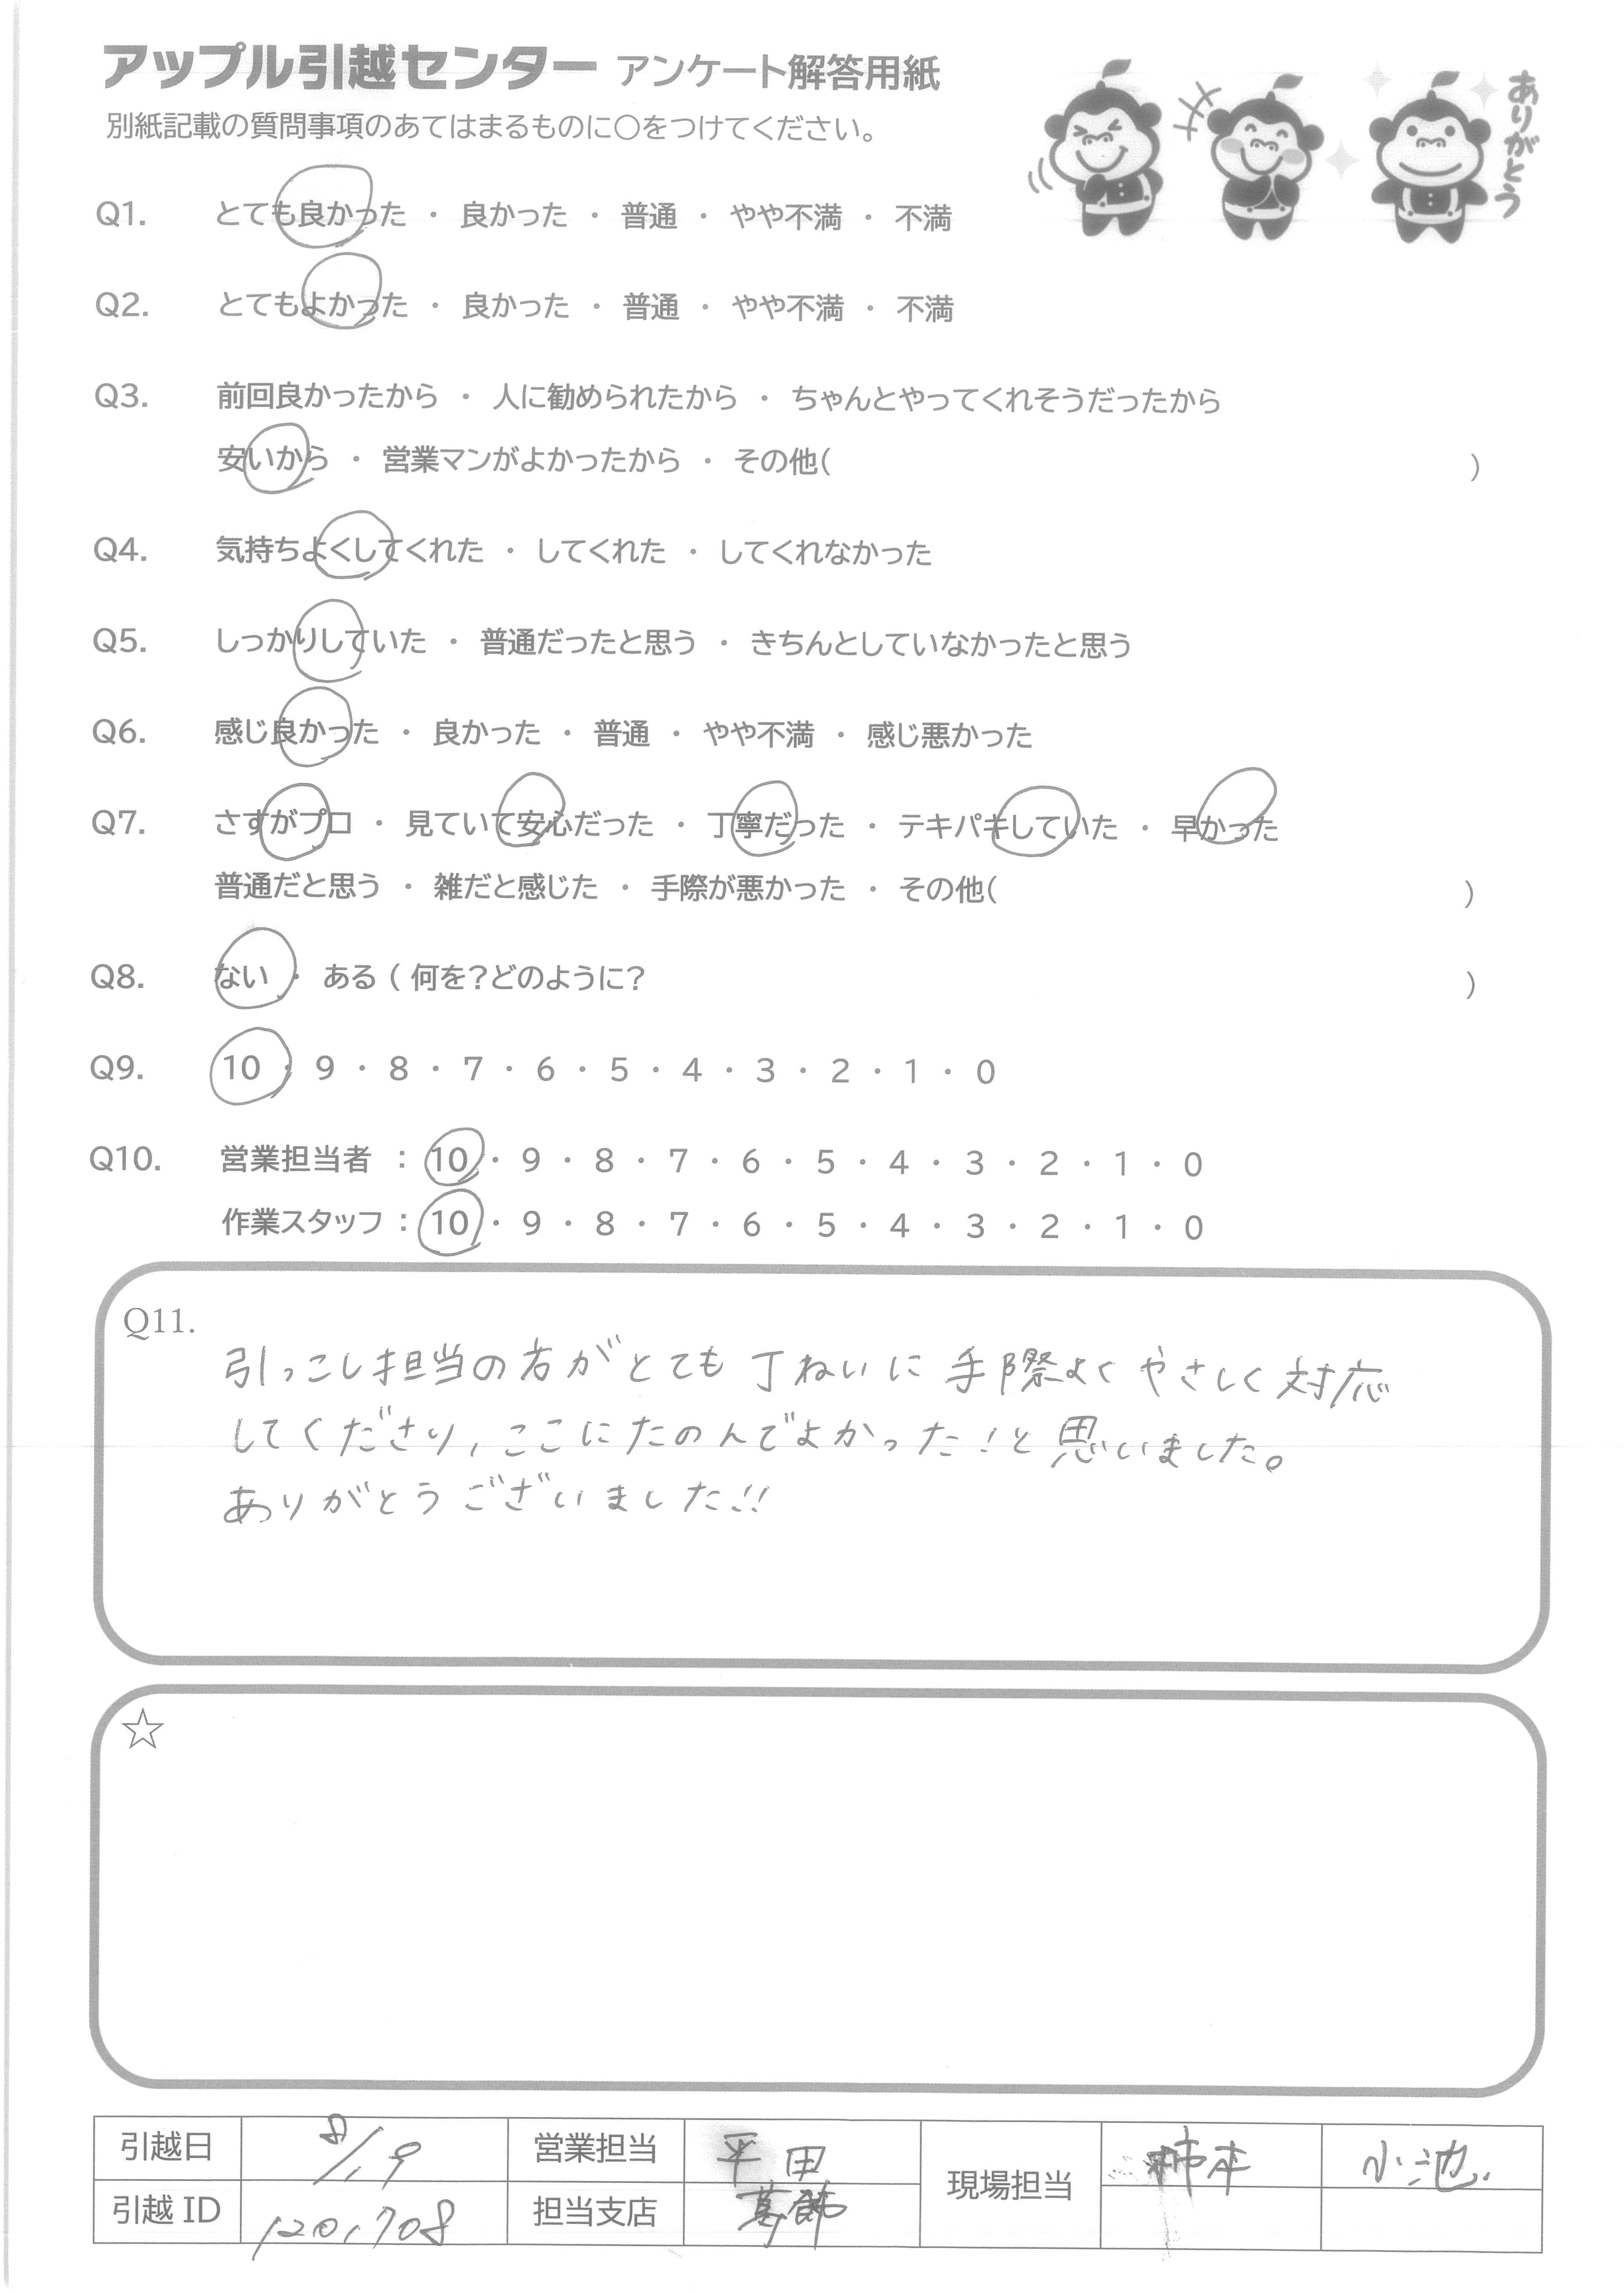 アップル引越センター アンケート解答用紙
別紙記載の質問事項のあてはまるものに○をつけてください。
ありがとう
Q1. とても良かった ・ 良かった ・ 普通 ・ やや不満 ・ 不満
Q2. とてもよかった ・ 良かった ・ 普通 ・ やや不満 ・ 不満
Q3. 前回良かったから ・ 人に勧められたから ・ ちゃんとやってくれそうだったから
安いから ・ 営業マンがよかったから ・ その他( )
Q4. 気持ちよくしてくれた ・ してくれた ・ してくれなかった
Q5. しっかりしていた ・ 普通だったと思う ・ きちんとしていなかったと思う
Q6. 感じ良かった ・ 良かった ・ 普通 ・ やや不満 ・ 感じ悪かった
Q7. さすがプロ ・ 見ていて安心だった ・ 丁寧だった ・ テキパキしていた ・ 早かった
普通だと思う ・ 雑だと感じた ・ 手際が悪かった ・ その他( )
Q8. ない ・ ある ( 何を?どのように? )
Q9. 10 ・ 9 ・ 8 ・ 7 ・ 6 ・ 5 ・ 4 ・ 3 ・ 2 ・ 1 ・ 0
Q10. 営業担当者 : 10 ・ 9 ・ 8 ・ 7 ・ 6 ・ 5 ・ 4 ・ 3 ・ 2 ・ 1 ・ 0
作業スタッフ : 10 ・ 9 ・ 8 ・ 7 ・ 6 ・ 5 ・ 4 ・ 3 ・ 2 ・ 1 ・ 0
Q11.
引っこし担当の方がとても丁ねいに手際よくやさしく対応
してくださり、ここにたのんでよかった!と思いました。
ありがとうございました!!
☆
引越日 8/19 営業担当 平田 現場担当 柿本 小池
引越ID 1201708 担当支店 葛飾